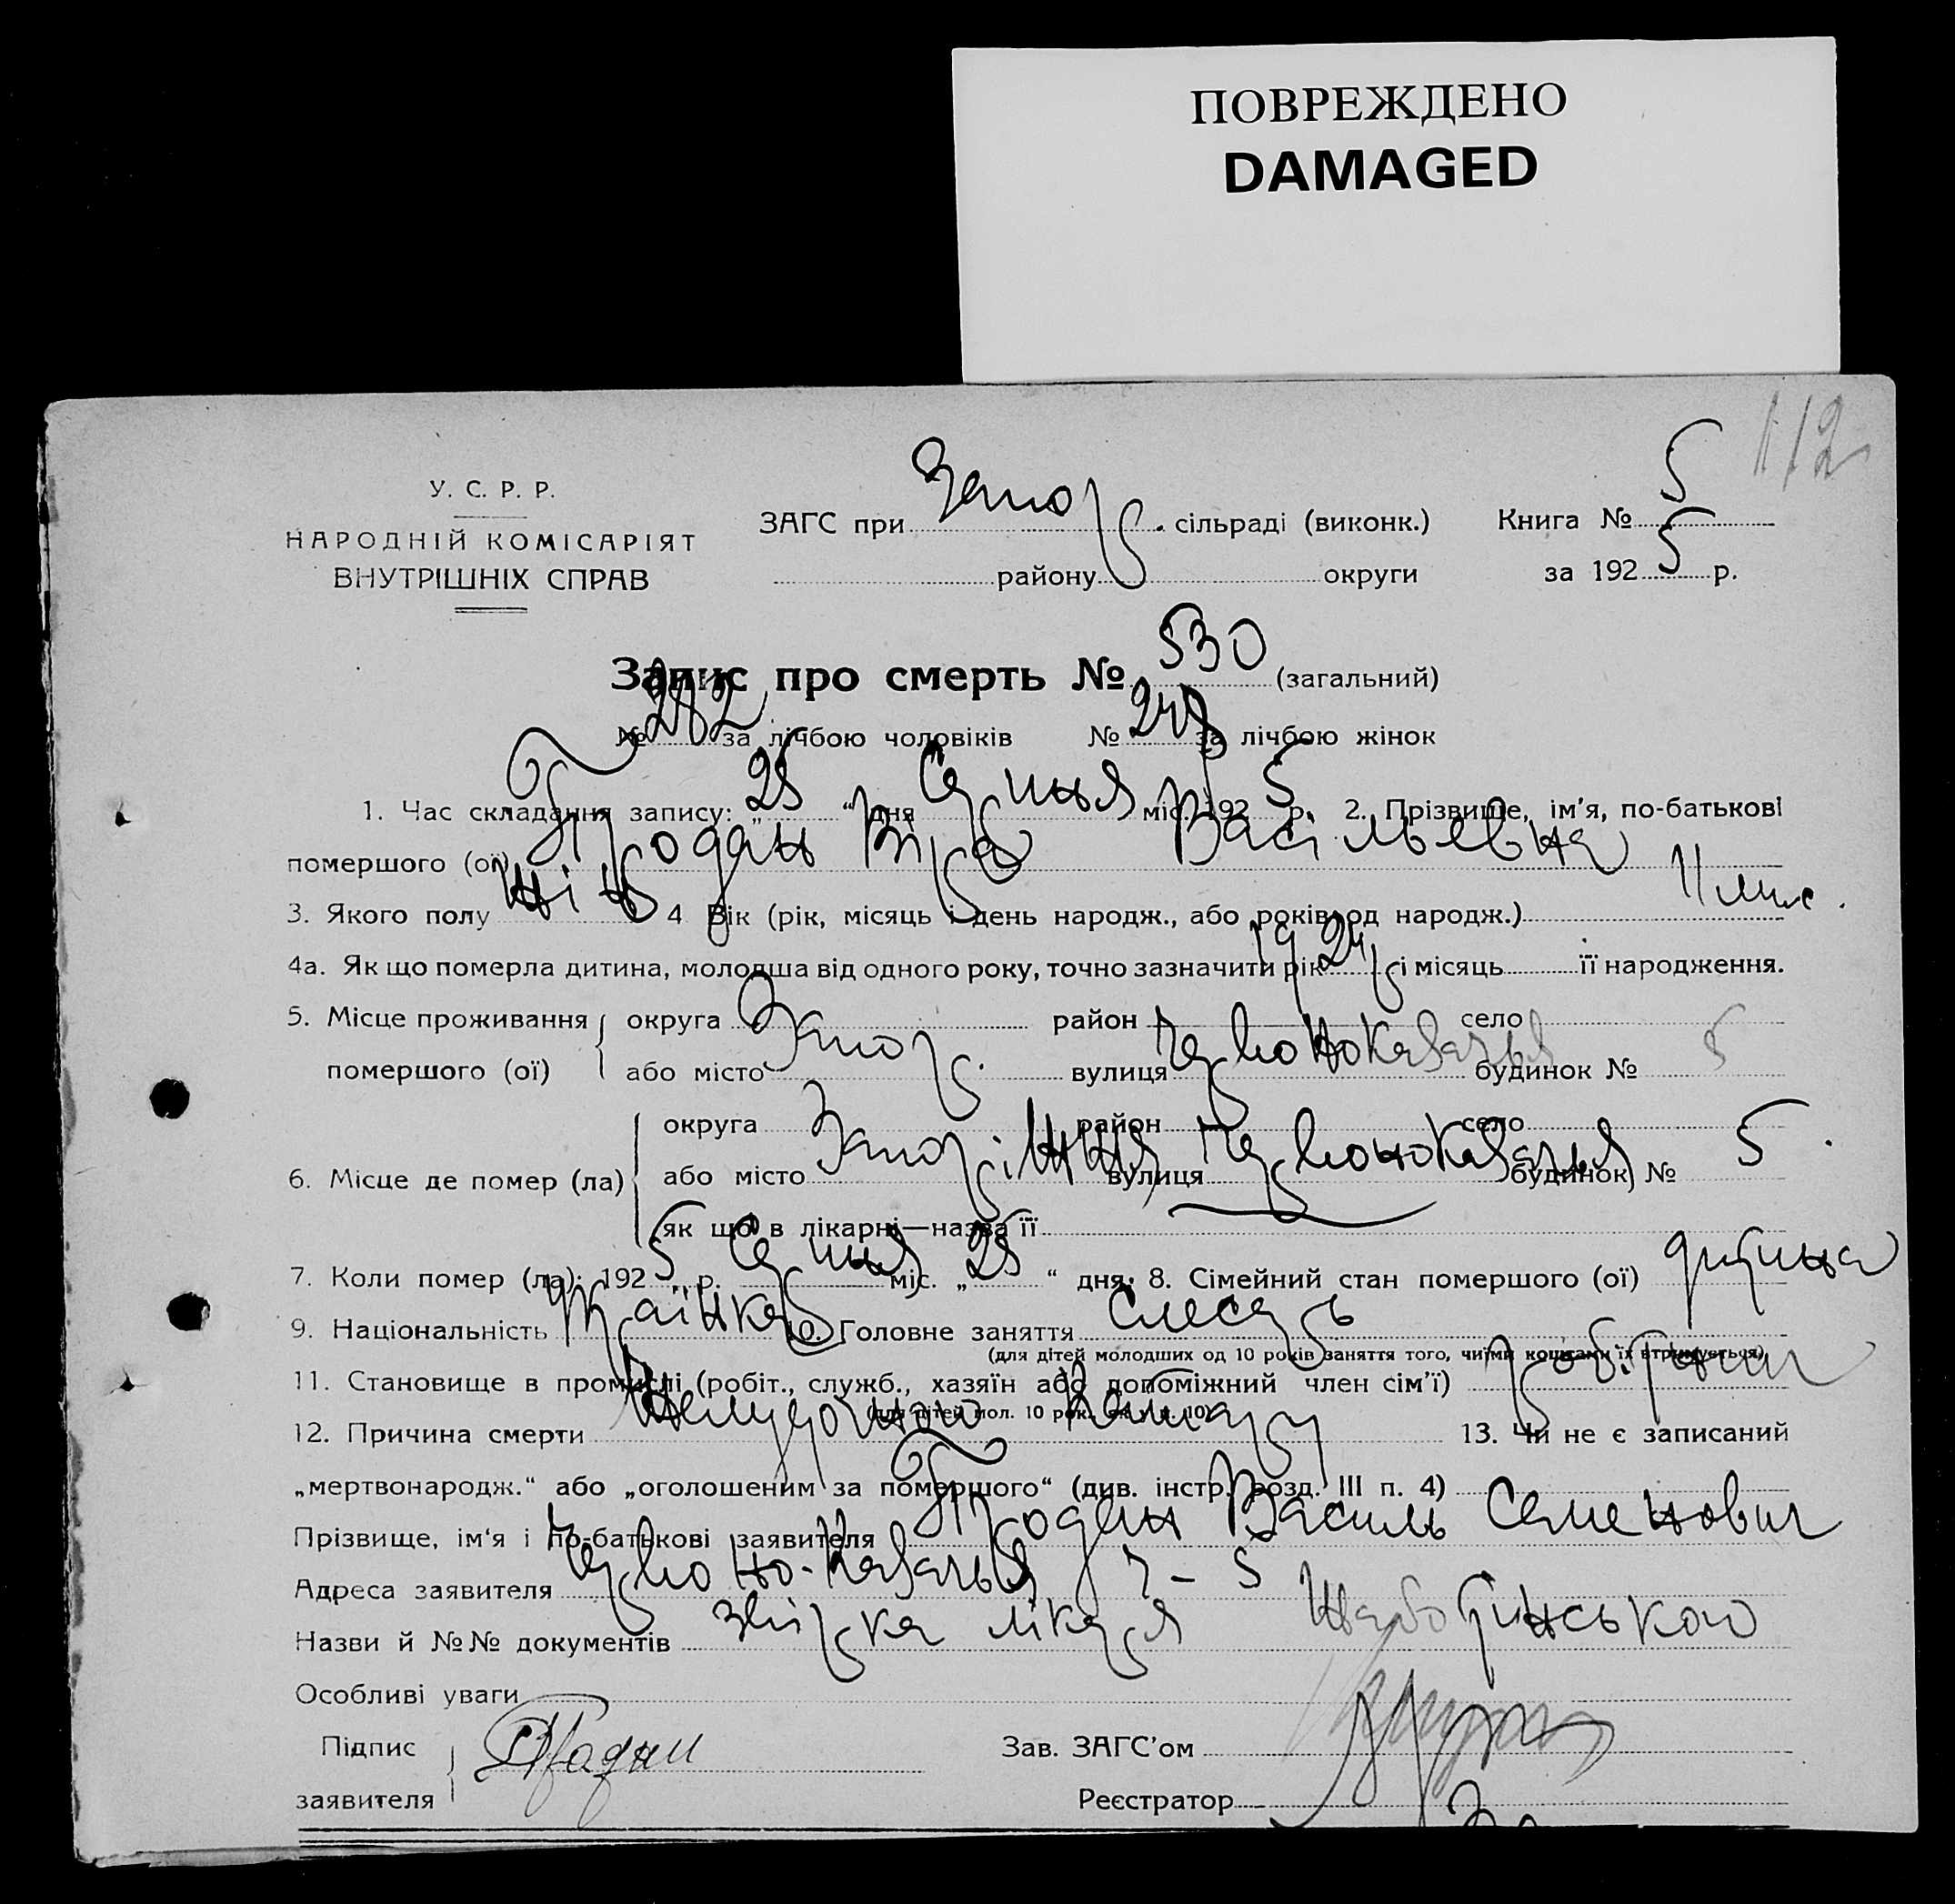 ПОВРЕЖДЕНО
DAMAGED
112
У. С. Р. Р.
НАРОДНІЙ КОМІСАРІЯТ
ВНУТРІШНІХ СПРАВ
ЗАГС при Запор. сільраді (виконк.) Книга № 5
району округи за 1925 р.
Запис про смерть № 530 (загальний)
№ 282 за лічбою чоловіків № 248 за лічбою жінок
1. Час складання запису: „25“ дня Серпня міс. 1925 р. 2. Прізвище, ім'я, по-батькові
помершого (ої) Продан Віра Васільевна
3. Якого полу жін 4 Вік (рік, місяць і день народж., або років од народж.) 11 міс.
4а. Як що померла дитина, молодша від одного року, точно зазначити рік 1924 р і місяць її народження.
5. Місце проживання помершого (ої) округа район село
або місто Запор. вулиця Червонокозача будинок № 5
6. Місце де помер (ла) округа район село
або місто Запоріжжя вулиця Червонокозача будинок № 5
як що в лікарні—назва її
7. Коли помер (ла): 1925 р. Серпня міс. „25“ дня; 8. Сімейний стан помершого (ої) дитина
9. Національність Українка 10. Головне заняття Слесарь
(для дітей молодших од 10 років заняття того, чиїми коштами їх втримується)
11. Становище в промислі (робіт., служб., хазяїн або допоміжний член сім'ї)
(для дітей мол. 10 рок., як у п. 10)
12. Причина смерти 13. Чи не є записаний
„мертвонародж.“ або „оголошеним за помершого“ (див. інстр. розд. III п. 4)
Прізвище, ім'я і по-батькові заявителя Продан Василь Семенович
Адреса заявителя Червоно-Козача ч - 5
Назви й №№ документів лікаря
Особливі уваги
Підпис заявителя Продан
Зав. ЗАГС'ом
Реєстратор